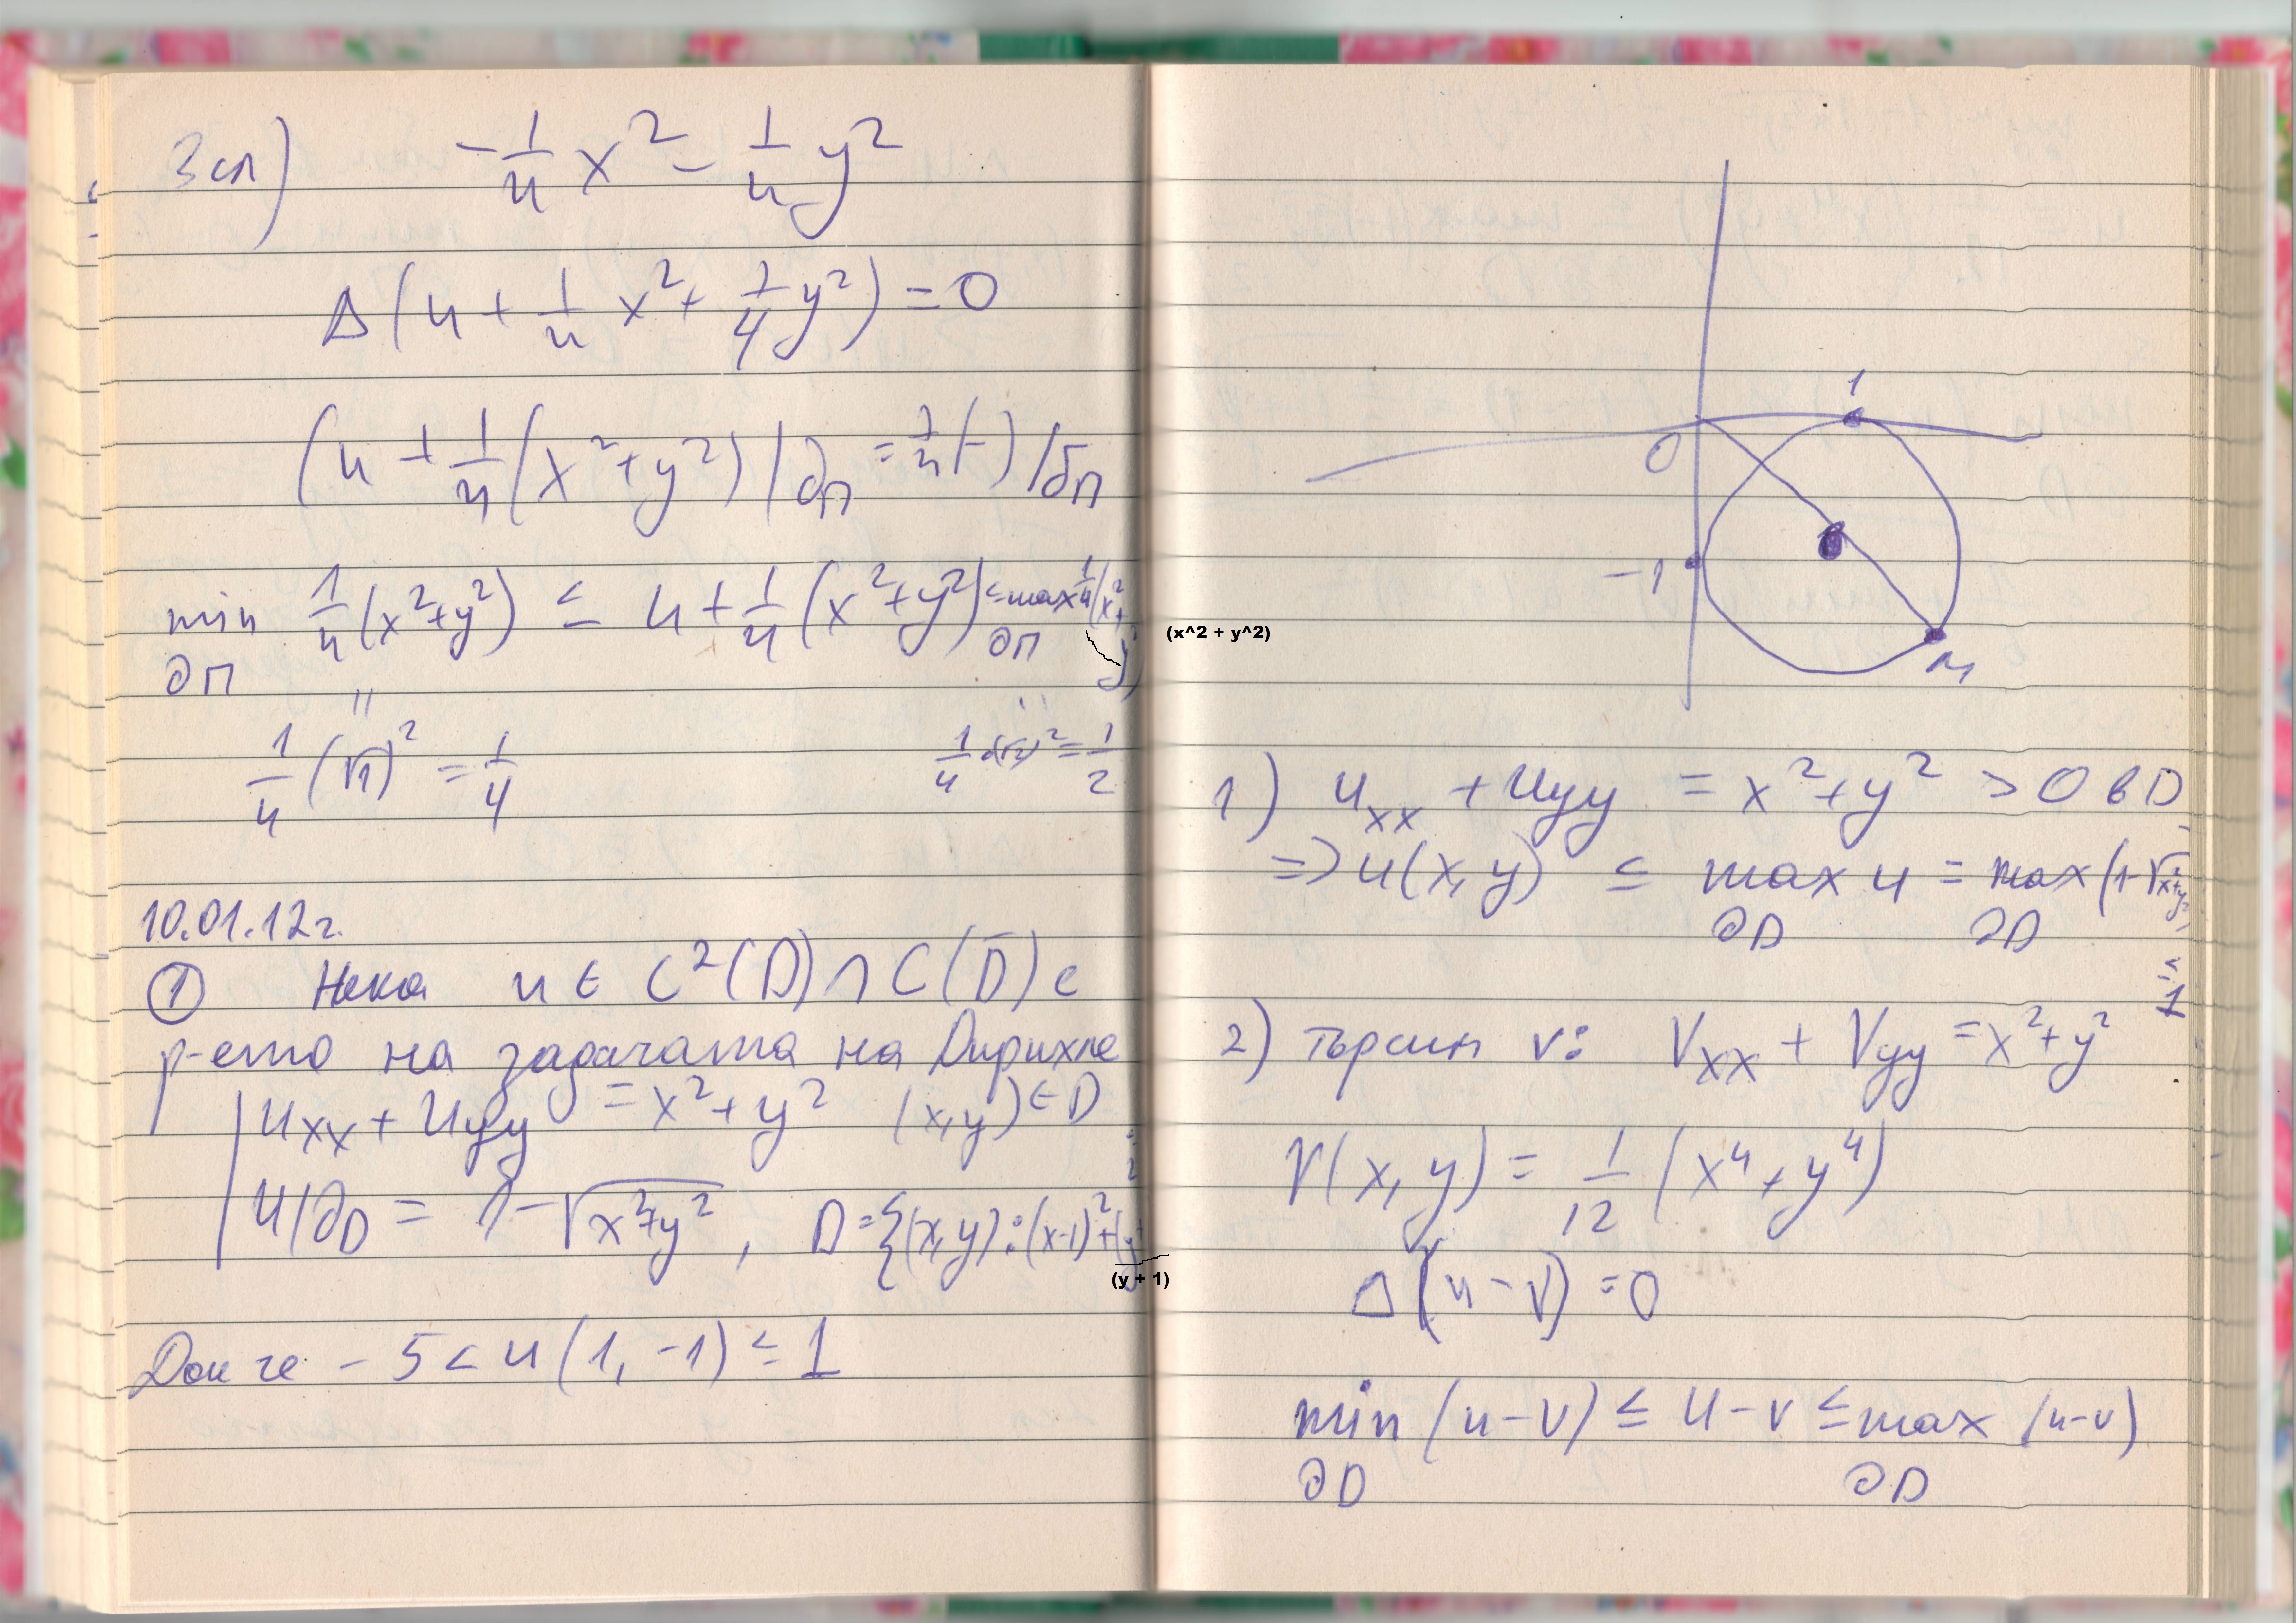 3 сл) -1/4 x² - 1/4 y²
Δ(u + 1/4 x² + 1/4 y²) = 0
(u + 1/4 (x² + y²)|∂П = 1/4 (-)|∂П
min ∂П 1/4 (x² + y²) ≤ u + 1/4 (x² + y²) ≤ max ∂П 1/4 (x² + y²)
(x^2 + y^2)
" "
1/4 (√1)² = 1/4
1/4 (√2)² = 1/2
10.01.12г.
① Нека u ∈ C²(D) ∩ C(D̄) е
р-ето на задачата на Дирихле
| uxx + uyy = x² + y² (x,y) ∈ D
| u|∂D = 1 - √x² + y² , D = {(x,y) : (x-1)² + (y
(y + 1)
Док че - 5 < u(1, -1) ≤ 1
1
0
-1
M
1) uxx + uyy = x² + y² > 0 в D
=> u(x, y) ≤ max ∂D u = max ∂D (1 - √x² + y²)
≤ 1
2) търсим v: Vxx + Vyy = x² + y²
V(x, y) = 1/12 (x⁴ + y⁴)
Δ(u - v) = 0
min ∂D (u - v) ≤ u - v ≤ max ∂D (u - v)